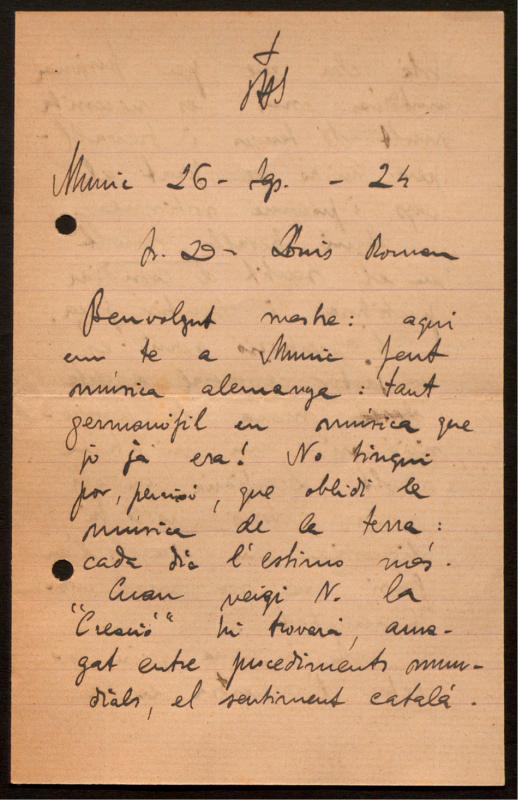 JHS
Munic 26 - Ag. - 24
Sr. D. Lluis Roman
Benvolgut mestre: aqui
em te a Munic fent
música alemanya: tant
germanófil en música que
jo ja era! No tingui
por, pero, que oblidi la
música de la terra:
cada dia l'estimo més.
Cuan veigi V. la
"Creació" hi trovará, ama-
gat entre procediments mun-
dials, el sentiment català.